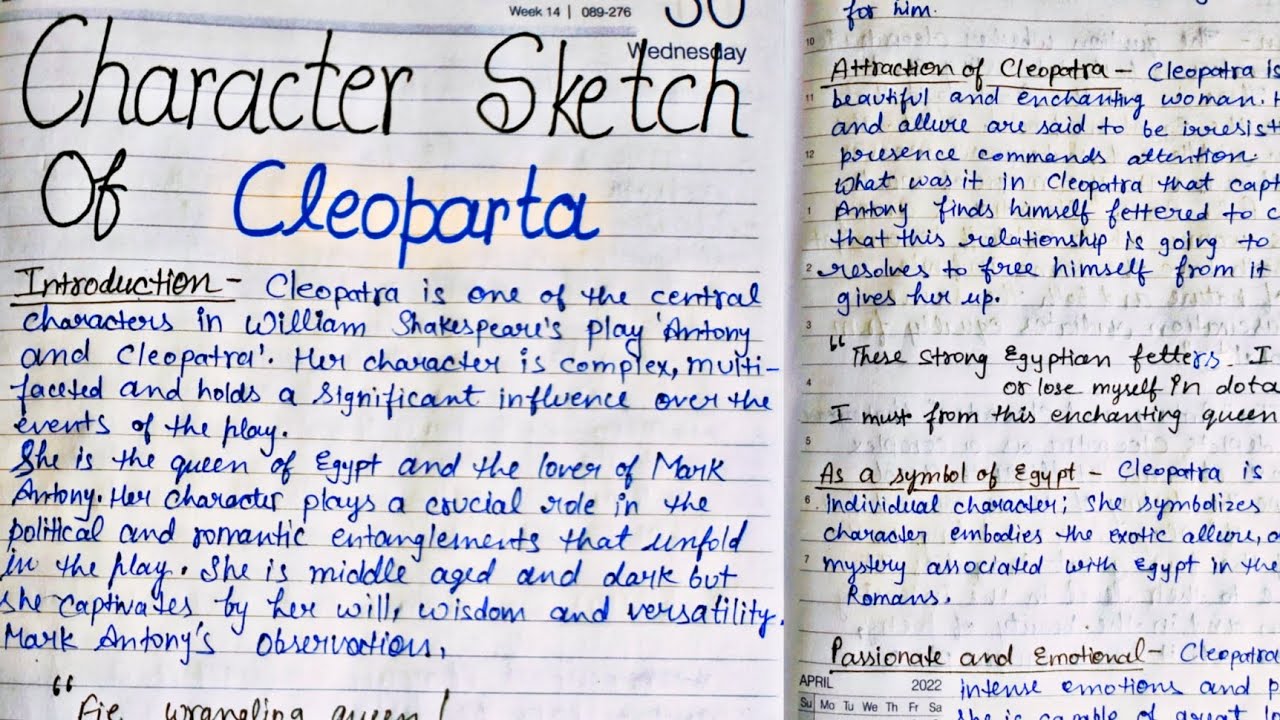 Week 14 | 089-276
30
Wednesday
Character Sketch
Of Cleoparta
Introduction - Cleopatra is one of the central
characters in William Shakespeare's play 'Antony
and Cleopatra'. Her character is complex, multi-
faceted and holds a significant influence over the
events of the play.
She is the queen of Egypt and the lover of Mark
Antony. Her character plays a crucial role in the
political and romantic entanglements that unfold
in the play. She is middle aged and dark but
she captivates by her will, wisdom and versatility.
Mark Antony's observation,
“ Fie, wrangling queen!
for him.
10
Attraction of Cleopatra - Cleopatra is
11 beautiful and enchanting woman. H
and allure are said to be irresist
12 presence commands attention.
What was it in Cleopatra that capt
1 Antony finds himself fettered to c
that this relationship is going to
2 resolves to free himself from it
gives her up.
3
“ These strong Egyptian fetters I
4 or lose myself in dota
I must from this enchanting queen
5
As a symbol of Egypt - Cleopatra is
6 individual character; she symbolizes
character embodies the exotic allure, a
7 mystery associated with Egypt in the
Romans.
Passionate and Emotional - Cleopatra
APRIL 2022
intense emotions and p
Su Mo Tu We Th Fr Sa
she is capable of great lo